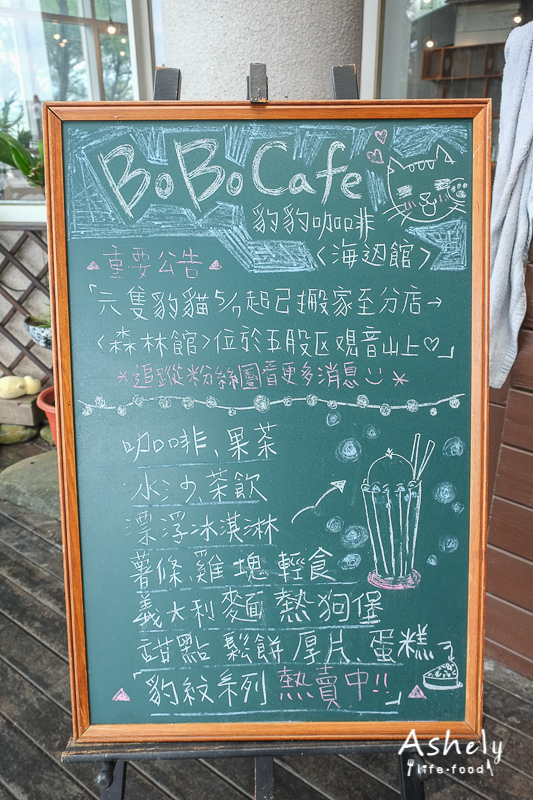 BoBo Cafe
豹豹咖啡
〈海辺館〉
▲重要公告▲
「六隻豹貓5/7起已搬家至分店→
〈森林館〉位於五股区観音山上♡」
*追蹤粉絲團看更多消息☺*
咖啡、果茶
冰沙、茶飲
漂浮冰淇淋
薯條、雞塊輕食
義大利麵 熱狗堡
甜點 鬆餅 厚片、蛋糕
▲「豹紋系列 熱賣中!!」▲
Ashely
life·food